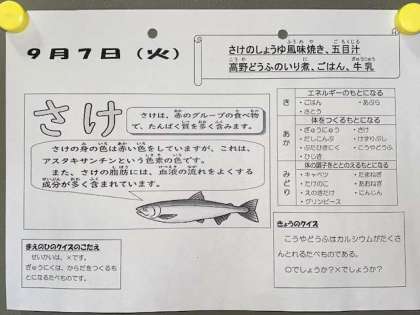 9月7日(火)
さけのしょうゆ風味焼き、五目汁
高野どうふのいり煮、ごはん、牛乳
さけ
さけは、赤のグループの食べ物
で、たんぱく質を多く含みます。
さけの身の色は赤い色をしていますが、これは、
アスタキサンチンという色素の色です。
また、さけの脂肪には、血液の流れをよくする
成分が多く含まれています。
エネルギーのもとになる
き
・ごはん
・あぶら
・さとう
体をつくるもとになる
あか
・ぎゅうにゅう
・さけ
・だしこんぶ
・けずりぶし
・ぶたひきにく
・こうやどうふ
・ひじき
体の調子をととのえるもとになる
みどり
・キャベツ
・たまねぎ
・たけのこ
・あおねぎ
・えのきだけ
・にんじん
・グリンピース
まえのひのクイズのこたえ
せいかいは、×です。
ぎゅうにくは、からだをつくるもと
になるたべものです。
きょうのクイズ
こうやどうふはカルシウムがたくさ
んとれるたべものである。
○でしょうか?×でしょうか?